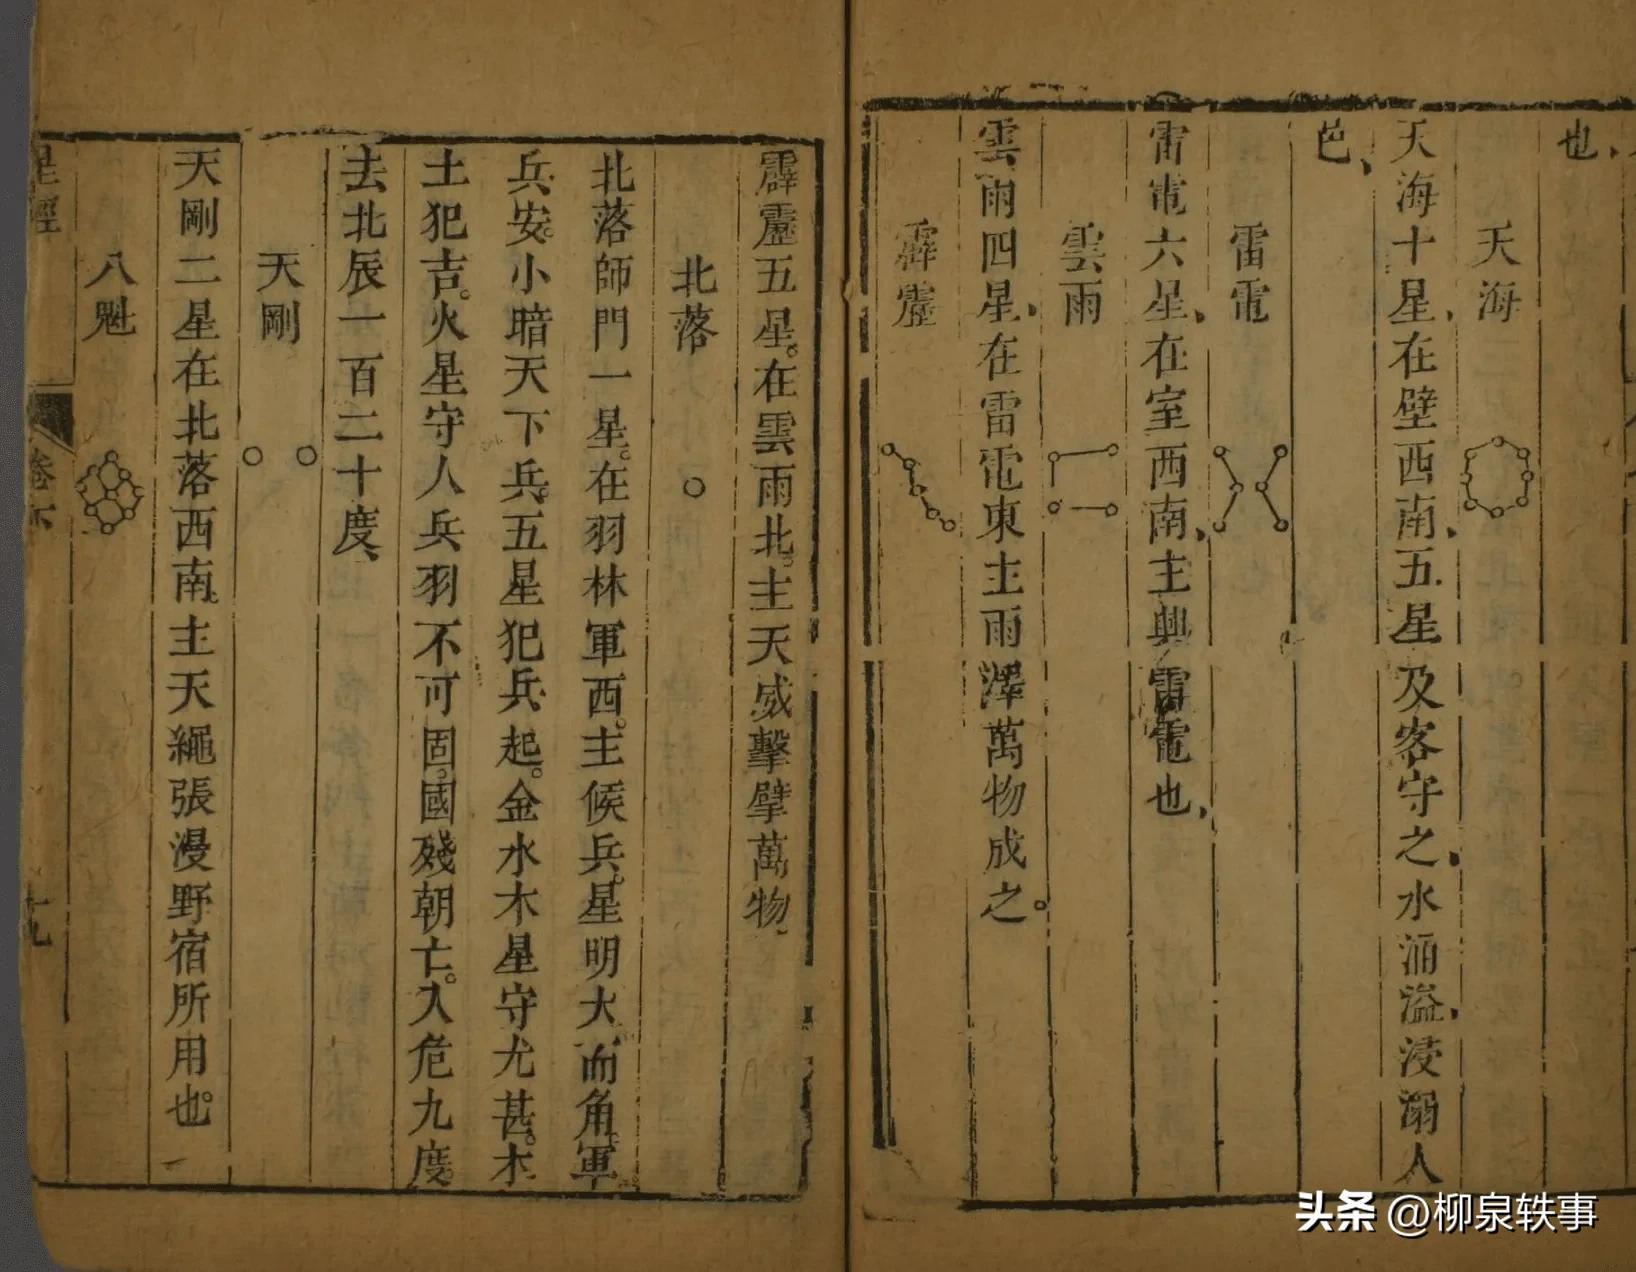 也、
天海
天海十星、在壁西南、五星及客守之、水涌溢、浸溺人
邑、
雷電
雷電六星、在室西南、主興雷電也、
雲雨
雲雨四星、在雷電東主雨澤萬物成之。
霹靂
霹靂五星。在雲雨北。主天威擊擘萬物
北落
北落師門一星。在羽林軍西。主候兵。星明大而角。軍
兵安。小暗天下兵。五星犯兵起。金水木星守尤甚。木
土犯吉。火星守人兵羽不可固。國殘朝亡。入危九度。
去北辰一百二十度、
天剛
天剛二星在北落西南。主天繩張漫野宿所用也。
八魁
星經
卷下
十九
头条 @柳泉轶事